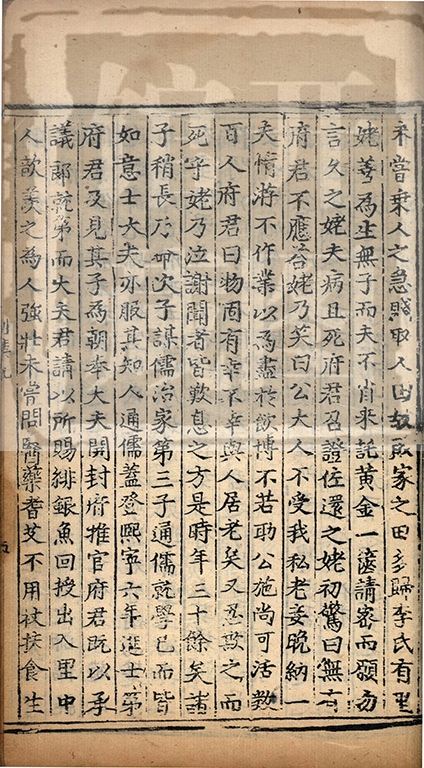 未嘗乘人之急賤取人田故敗家之田多歸李氏有里
姥善為生無子而夫不肖來託黃金一篋請密而願勿
言久之姥夫病且死府君召證佐還之姥初驚曰無有
府君不應咨姥乃笑曰公大人不受我私老妾晚納一
夫惰游不作業以為盡於飲博不若助公施尚可活數
百人府君曰物固有幸不幸與人居老矣又忍欺之而
死乎姥乃泣謝聞者皆歎息之方是時年三十餘矣諸
子稍長乃命次子謀儒治家第三子通儒就學已而皆
如意士大夫亦服其知人通儒蓋登熙寧六年進士第
府君及見其子為朝奉大夫開封府推官府君既以承
議郎就第而大夫君請以所賜緋銀魚回授出入里中
人歆羨之為人強壯未嘗問醫藥耆艾不用杖扶食生